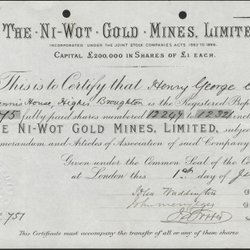 THE NI-WOT GOLD MINES, LIMITE
INCORPORATED UNDER THE JOINT STOCK COMPANIES ACTS
CAPITAL £200,000 IN SHARES OF £1 EACH.
This is to Certify that Henry George
House, Higher Broughton is the Registered Prop
75 fully paid shares numbered 12247 to 12321
THE NI-WOT GOLD MINES, LIMITED, subje
emorandum and Articles of Association of said Company
Given under the Common Seal of the Co
at London this 1st day of
Waddington
751
This Certificate must accompany the transfer of all or any of these shares